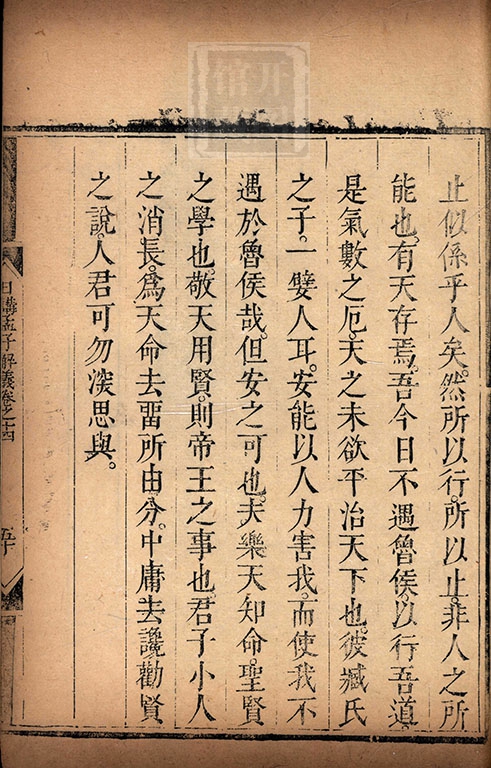 止似係乎人矣。然所以行。所以止。非人之所
能也。有天存焉。吾今日不遇魯侯。以行吾道。
是氣數之厄。天之未欲平治天下也。彼臧氏
之子。一嬖人耳。安能以人力害我。而使我不
遇於魯侯哉。但安之可也。夫樂天知命。聖賢
之學也。敬天用賢。則帝王之事也。君子小人
之消長。為天命去畱所由分。中庸去讒勸賢
之說。人君可勿深思與。
日講孟子解義卷之十四
五十